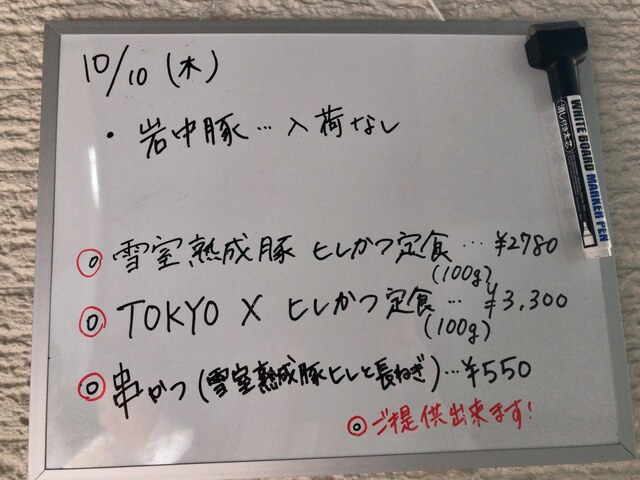 10/10 (木)
・岩中豚…入荷なし
◎ 雪室熟成豚 ヒレかつ定食…¥2780
(100g)
◎ TOKYO X ヒレかつ定食…¥3,300
(100g)
◎ 串かつ(雪室熟成豚ヒレと長ねぎ)…¥550
◎ご提供出来ます!
WHITE BOARD MARKER PEN